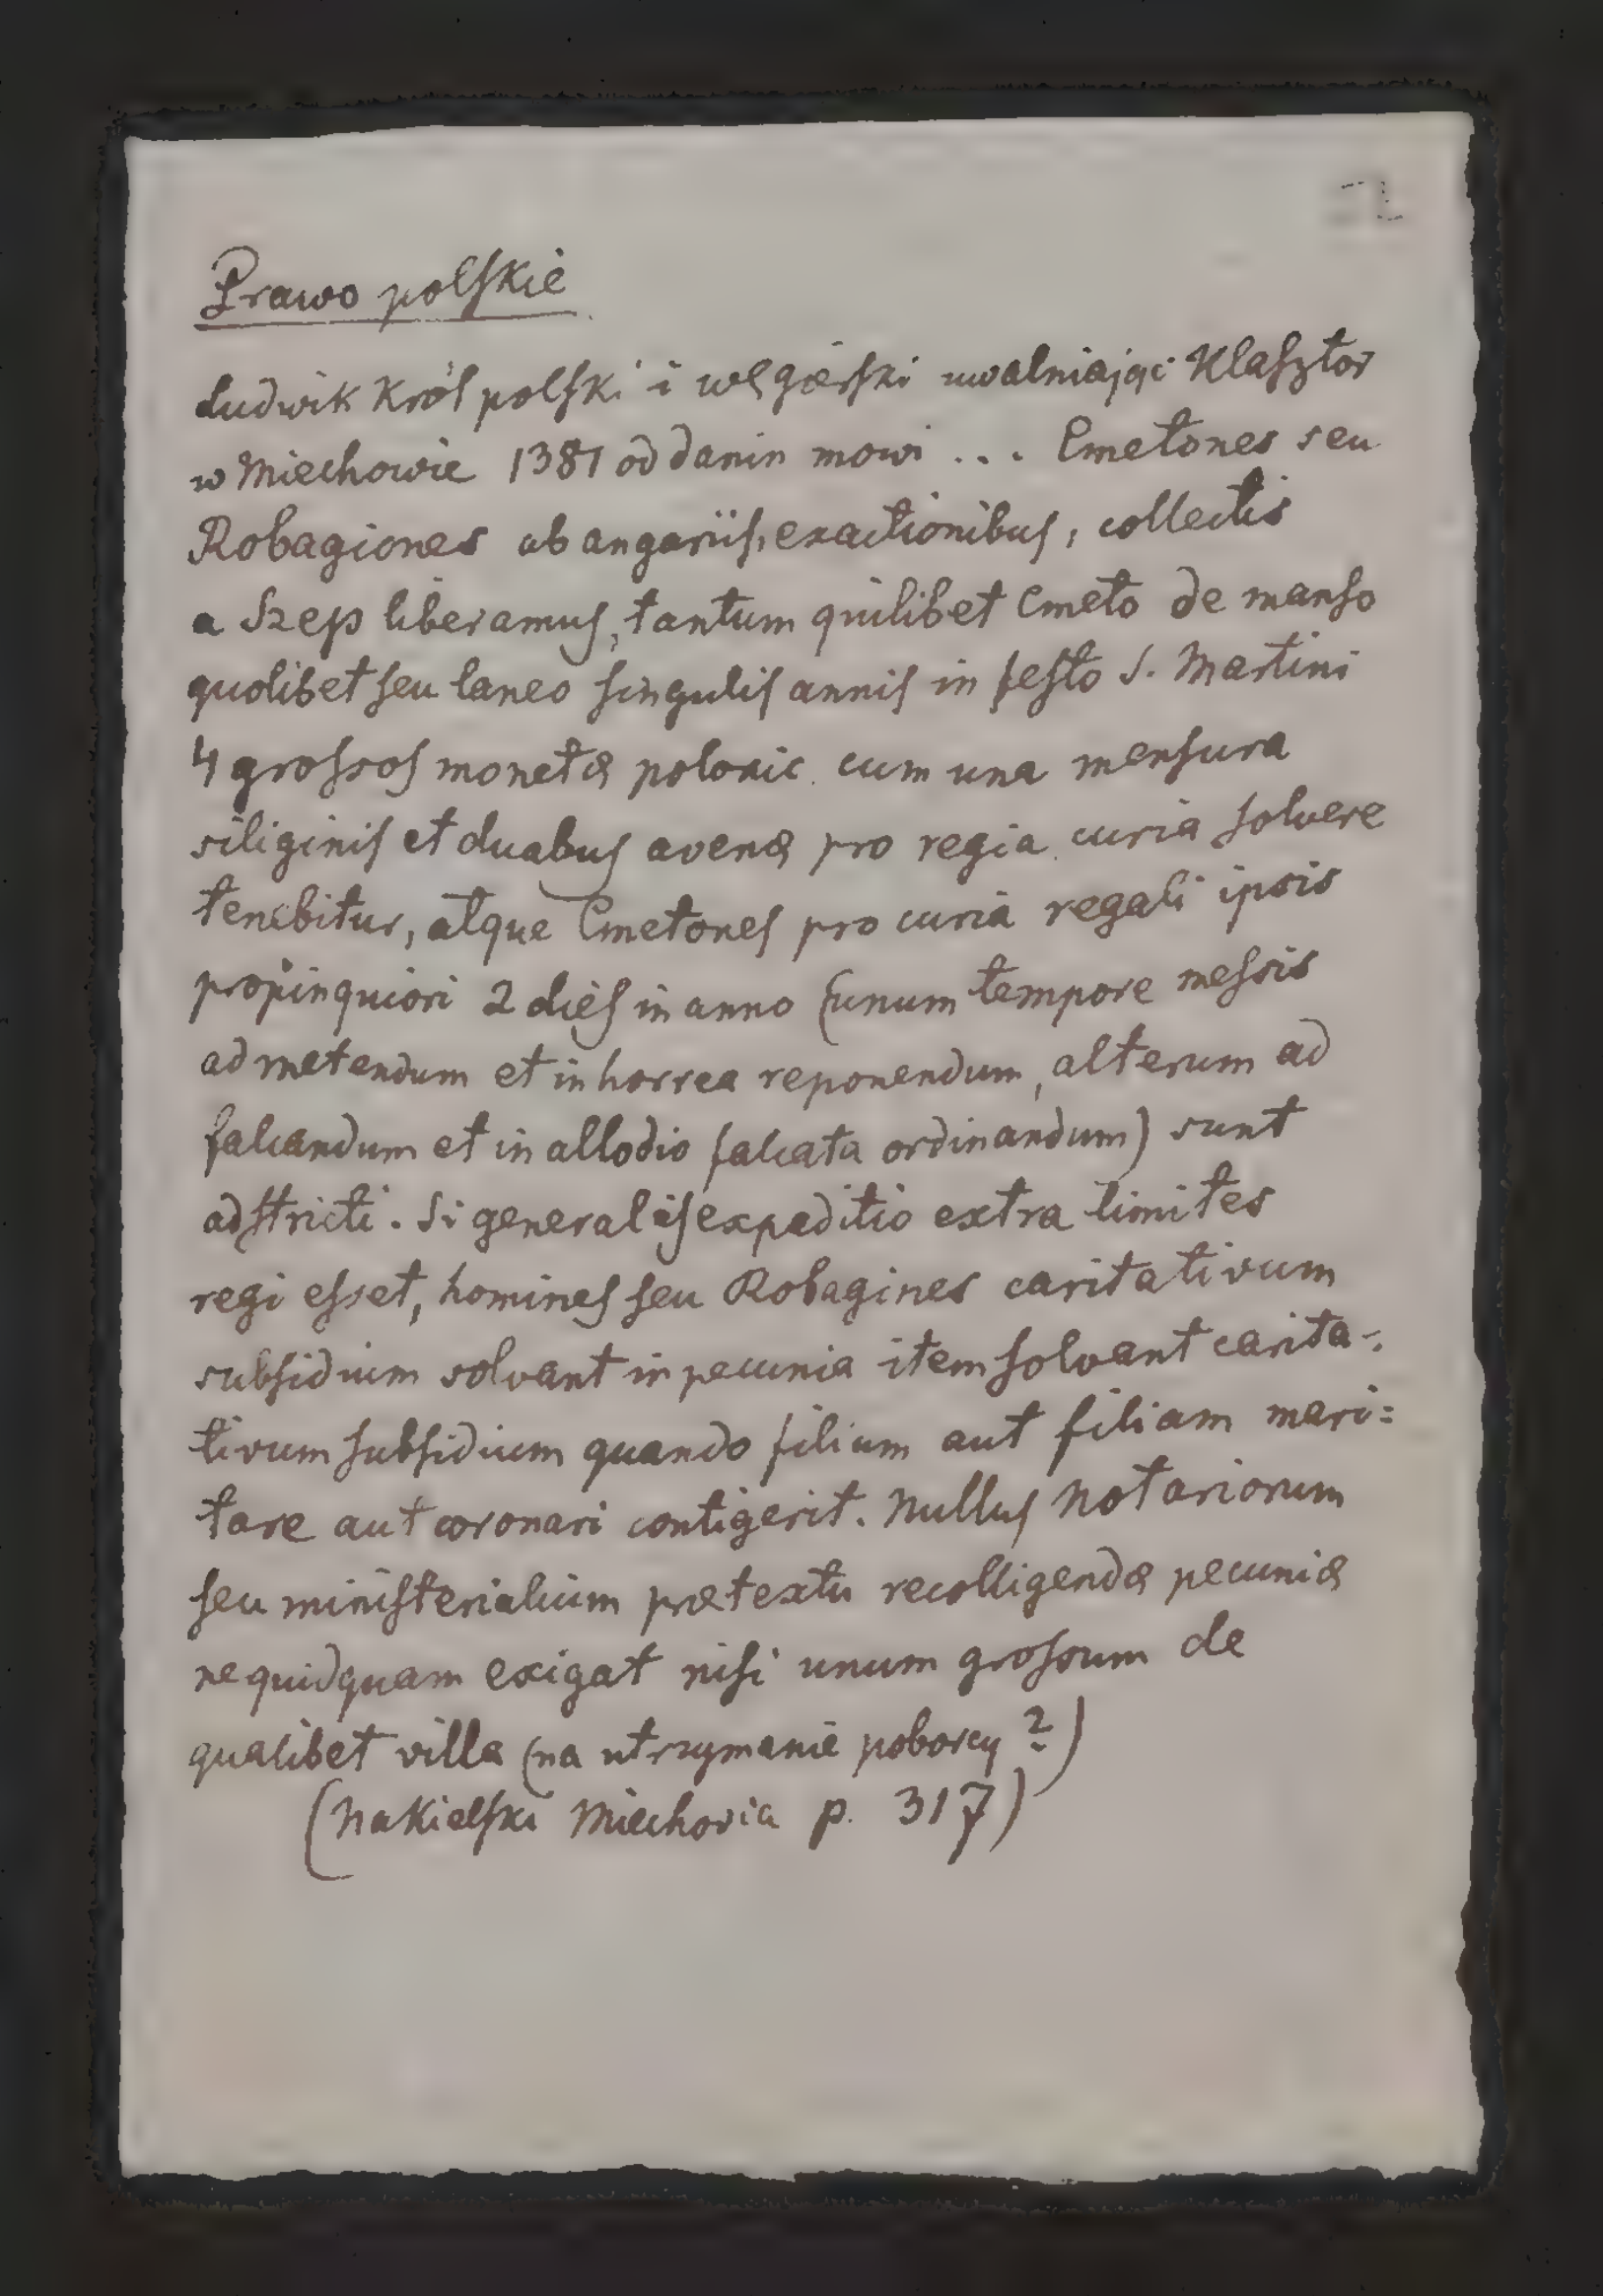 Prawo polskie
Ludwik Król polski i węgierski uwalniając Klasztor
w Miechowie 1381 od danin mowi ... Cmetones seu
Robagiones ab angariis, exactionibus, collectis
a Szep liberamus, tantum quilibet Cmeto de manso
quolibet seu laneo singulis annis in festo S. Martini
4 grossos monetæ polonic. cum una mensura
siliginis et duabus avenæ pro regia curia solvere
tenebitur, atque Cmetones pro curia regali ipsis
propinquiori 2 dies in anno (unum tempore messis
ad metendum et in horrea reponendum, alterum ad
falcandum et in allodio falcata ordinandum) sunt
adstricti. Si generalis expeditio extra limites
regi esset, homines seu Robagines caritativum
subsidium solvant in pecunia item solvant carita-
tivum subsidium quando filium aut filiam mari=
tare aut coronari contigerit. Nullus Notariorum
seu ministerialium prætextu recolligendæ pecuniæ
ne quidquam exigat nisi unum grossum de
qualibet villa (na utrzymanie poborcy?)
(Nakielski Miechovia p. 317)